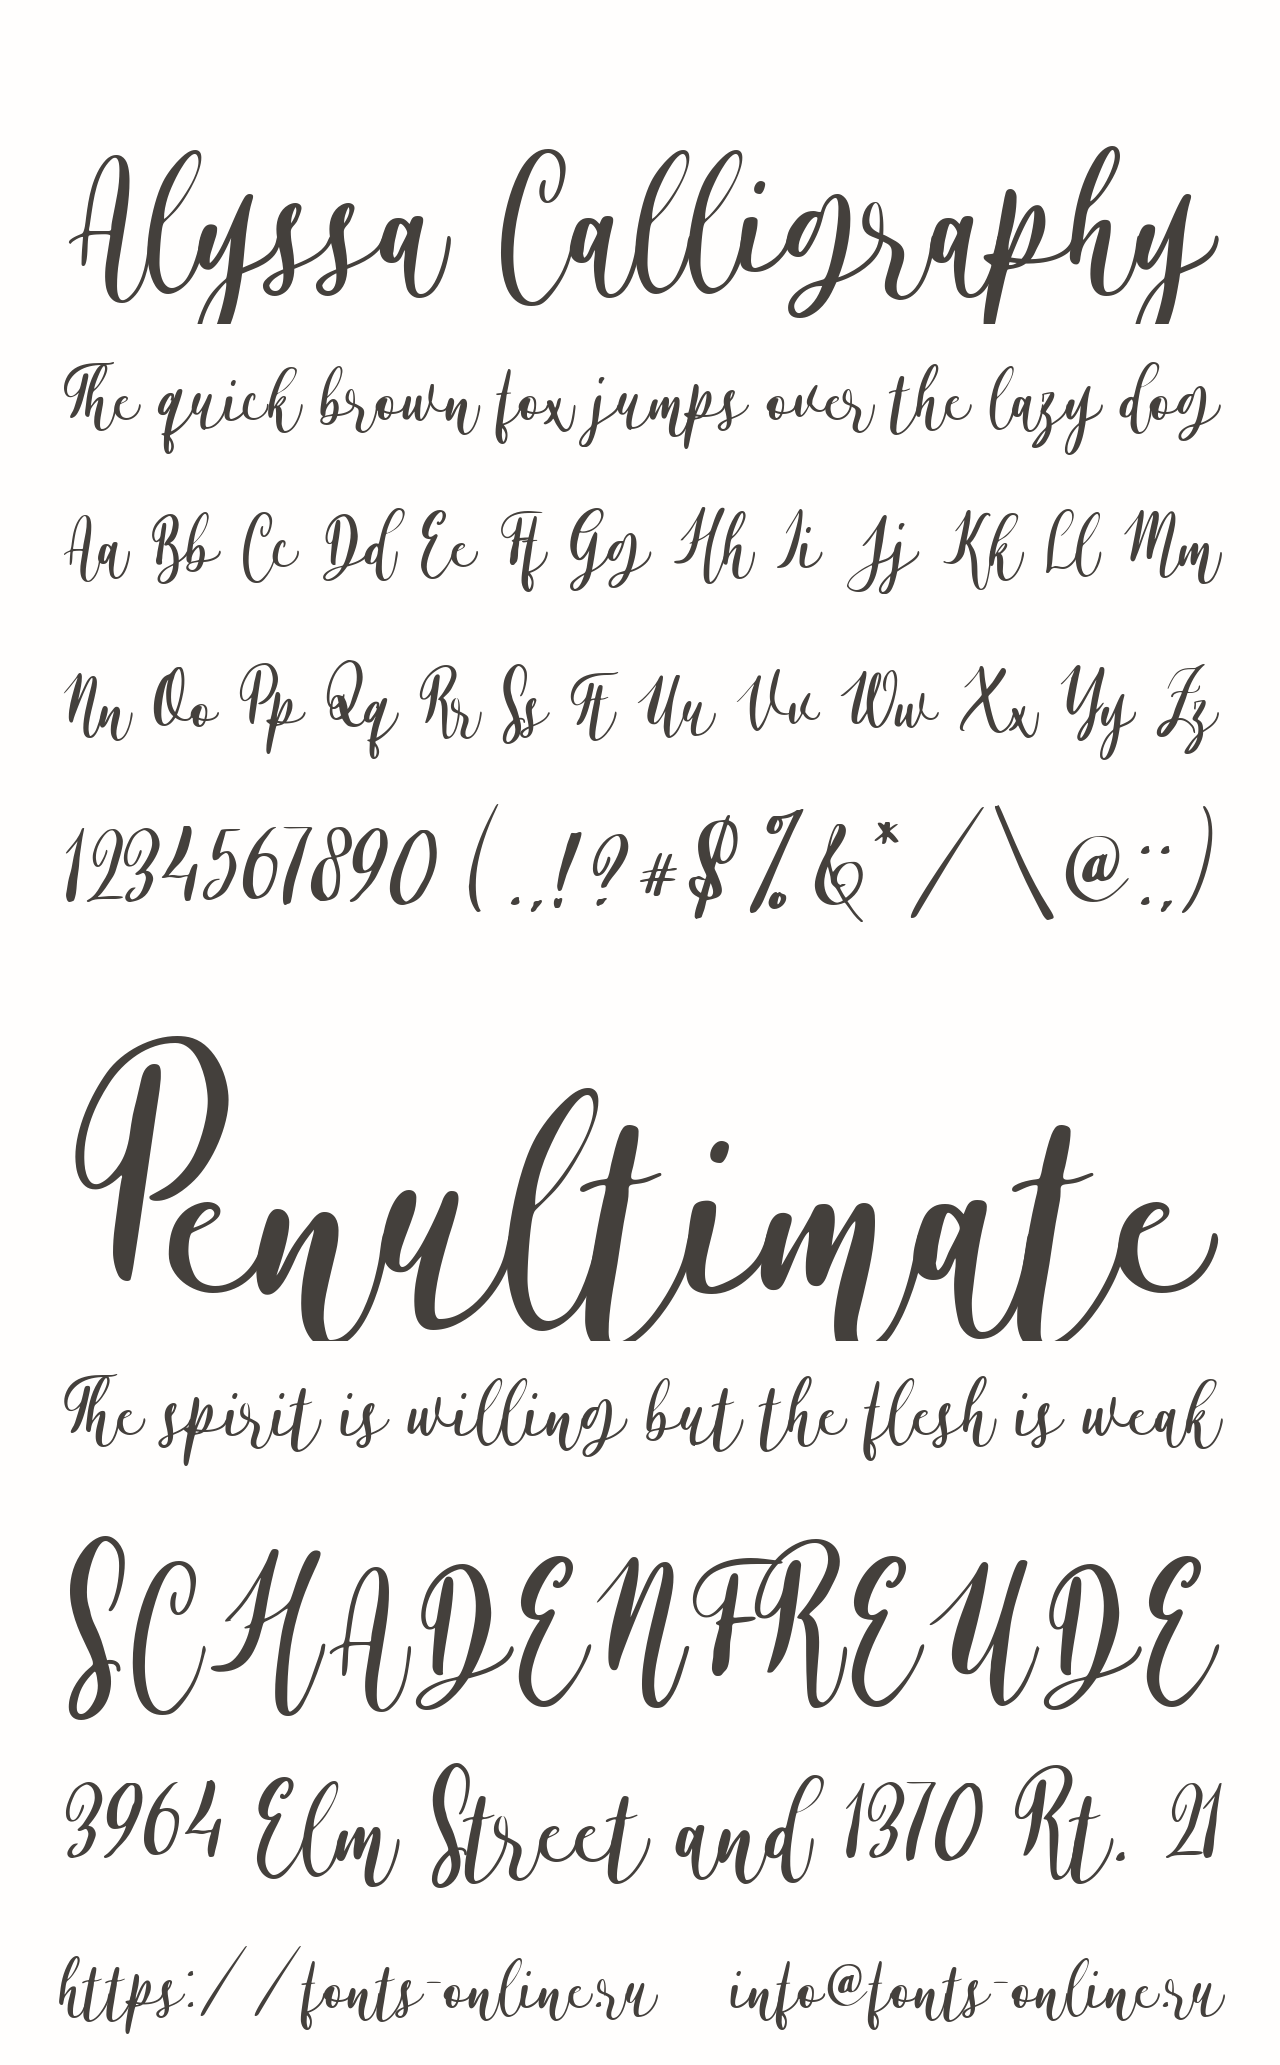 Alyssa Calligraphy
The quick brown fox jumps over the lazy dog
Aa Bb Cc Dd Ee Ff Gg Hh Ii Jj Kk Ll Mm
Nn Oo Pp Qq Rr Ss Tt Uu Vv Ww Xx Yy Zz
1234567890 (.,!?#$%&*/\@:;)
Penultimate
The spirit is willing but the flesh is weak
SCHADENFREUDE
3964 Elm Street and 1370 Rt. 21
https://fonts-online.ru info@fonts-online.ru